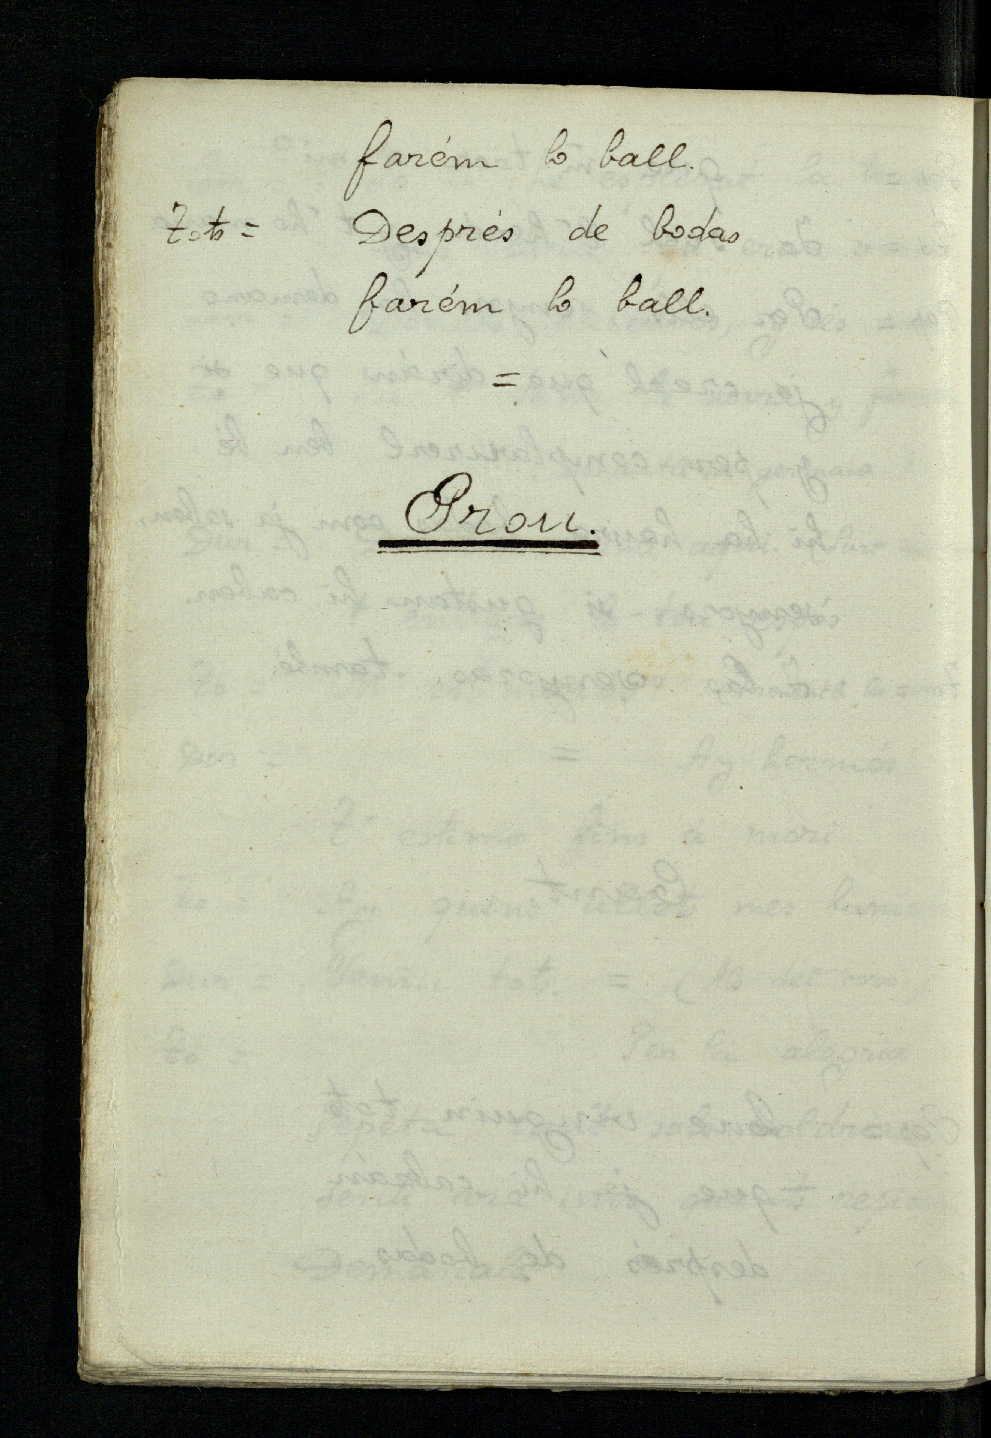 farém lo ball.
Tots = Després de bodas
farém lo ball.
=
Prou.